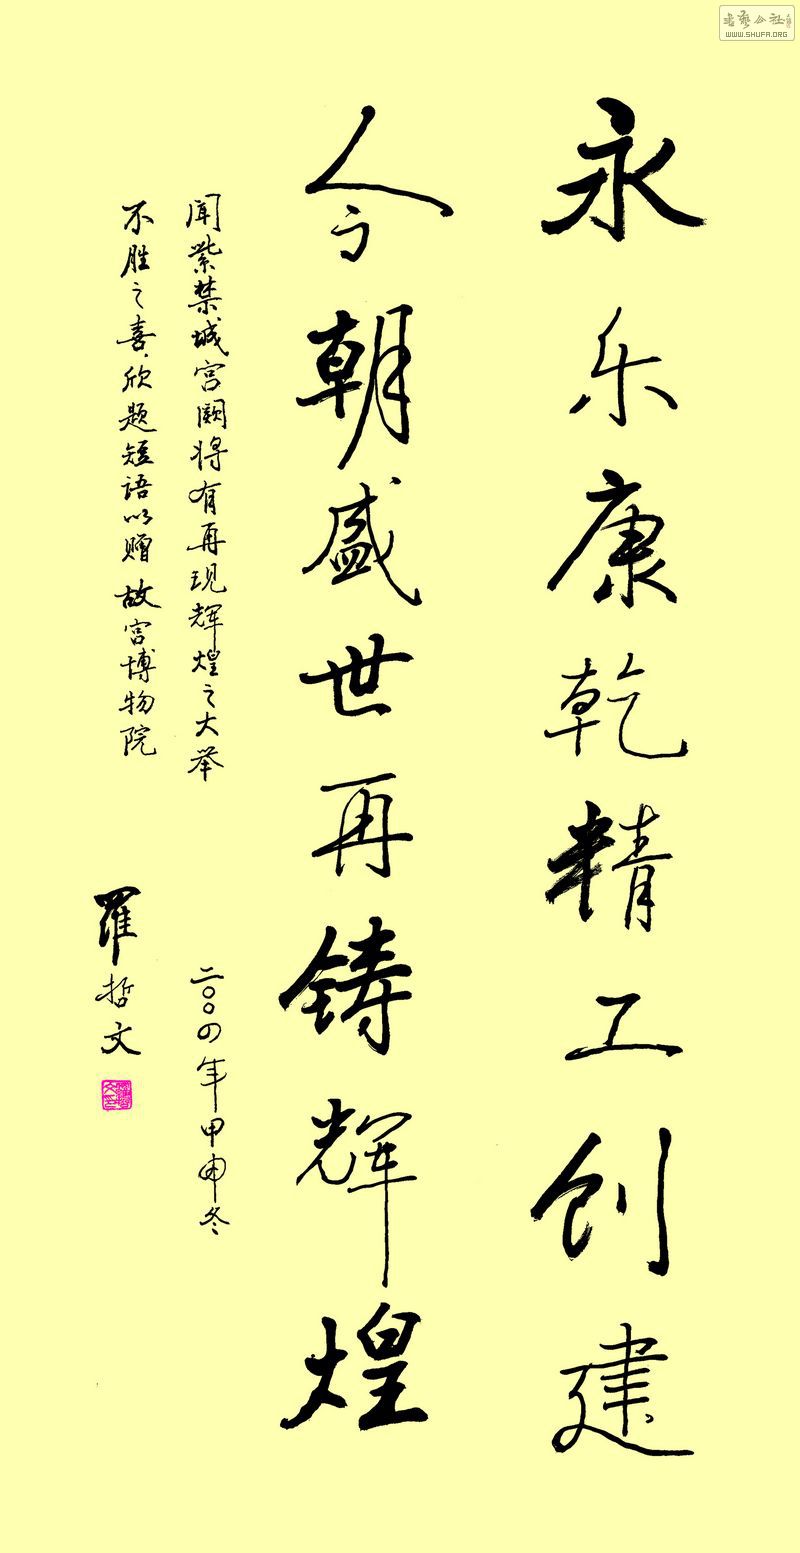 永乐康乾精工创建
今朝盛世再铸辉煌
闻紫禁城宫阙将有再现辉煌之大举
不胜之喜.欣题短语以赠故宫博物院
二〇〇四年甲申冬
羅哲文
书艺公社
WWW.SHUFA.ORG